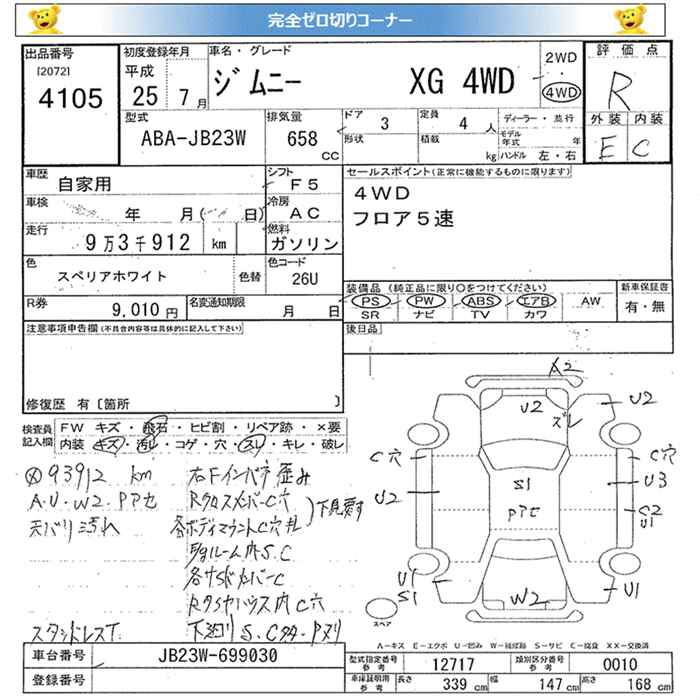 完全ゼロ切りコーナー
出品番号 初度登録年月 車名・グレード 2WD 評価点
[2072] 平成 ・
4105 25 7月 ジムニー XG 4WD 4WD R
型式 排気量 ドア 3 定員 4人 ディーラー・並行 外装 内装
ABA-JB23W 658 CC 形状 積載 kg モデル年式 年 E C
ハンドル 左・右
車歴 自家用 シフト F5 セールスポイント(正常に機能するものに限ります)
車検 年 月( 日) 冷房 AC 4WD
走行 9万3千912 km 燃料 ガソリン フロア5速
色 スペリアホワイト 色替 色コード 26U
装備品(純正品に限り○をつけてください) 新車保証書
R券 9,010円 名変通知期限 月 日 PS PW ABS エアB AW 有・無
SR ナビ TV カワ
注意事項申告欄(不具合内容等は具体的に記入して下さい) 後日品
修復歴 有[箇所 ]
検査員記入欄 FW キズ・飛石・ヒビ割・リペア跡・×要
内装 キズ・汚れ・コゲ・穴・スレ・キレ・破レ
93912 km 右Fインパネ歪み
A.U.W2.Pアセ Rクロスメンバーc穴
天バリ汚れ 各ボディマウントC穴
下見要す
ルーム内S.C
各サイドメンバーC
Rタイヤハウス内C穴
スタッドレスT 下廻りS.C
A2
U2 U2
ズレ
C穴 C穴
U2 S1 U3
Pアセ C2
U1
U1 W2 U1
S1
スペア
A-キズ E-エクボ U-凹み W-補修跡 S-サビ C-腐食 XX-交換済
車台番号 JB23W-699030 型式指定番号 参考 12717 類別区分番号 参考 0010
登録番号 車庫証明用 参考 長さ 339 cm 幅 147 cm 高さ 168 cm